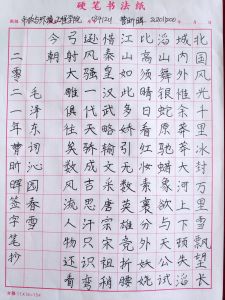 硬笔书法纸
北国风光千里冰封万里雪飘望长
城内外惟余莽莽大河上下顿失滔
滔山舞银蛇原驰蜡象欲与天公试
比高须晴日看红装素裹分外妖娆
江山如此多娇引无数英雄竞折腰
惜秦皇汉武略输文采唐宗宋祖稍
逊风骚一代天骄成吉思汗只识弯
弓射大雕俱往矣数风流人物还看
今朝
毛泽东词沁园春雪
二零二一年
笔抄